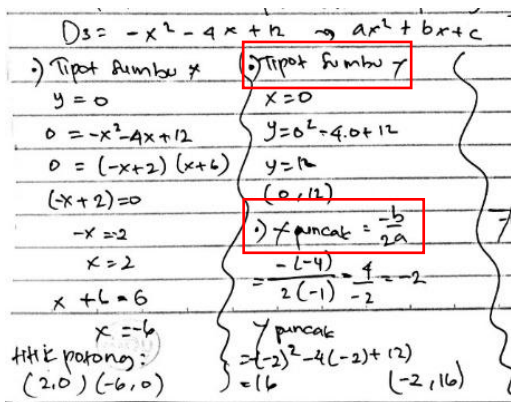 D3 = -x² - 4x + 12 → ax² + bx + c
•) Tipot Sumbu x
y = 0
0 = -x²-4x+12
0 = (-x+2) (x+6)
(-x+2)=0
-x=-2
x=2
x+6=6
x=-6
titik potong:
(2,0) (-6,0)
•) Tipot Sumbu y
x=0
y=0²-4.0+12
y=12
(0,12)
•) x puncak = -b/2a
= -(-4)/2(-1) = 4/-2 = -2
y puncak
=(-2)²-4(-2)+12)
=16
(-2,16)